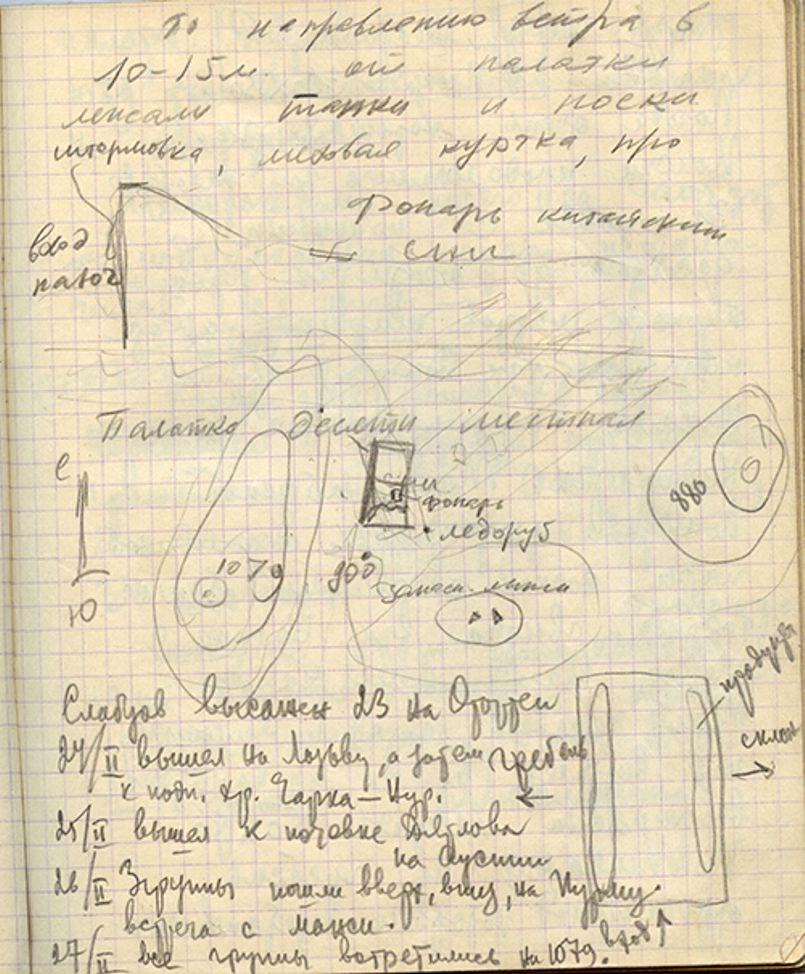 По направлению ветра в
10-15м. от палатки
лежали тапки и носки
штормовка, меховая куртка, про
Фонарь китайский
вход
С
Палатка десяти местная
фонарь
ледоруб
880
1079
900
Ю
Слабцов высажен 23 на Отортен
продукты
склон
24/II вышел на Лозьву, а затем гребень
к подн. хр. Чарка-Нур.
25/II вышел к ночевке Дятлова
на Ауспии
26/II 3 группы пошли вверх, вниз, на Пурму.
встреча с манси.
вход
27/II все группы встретились на 1079.